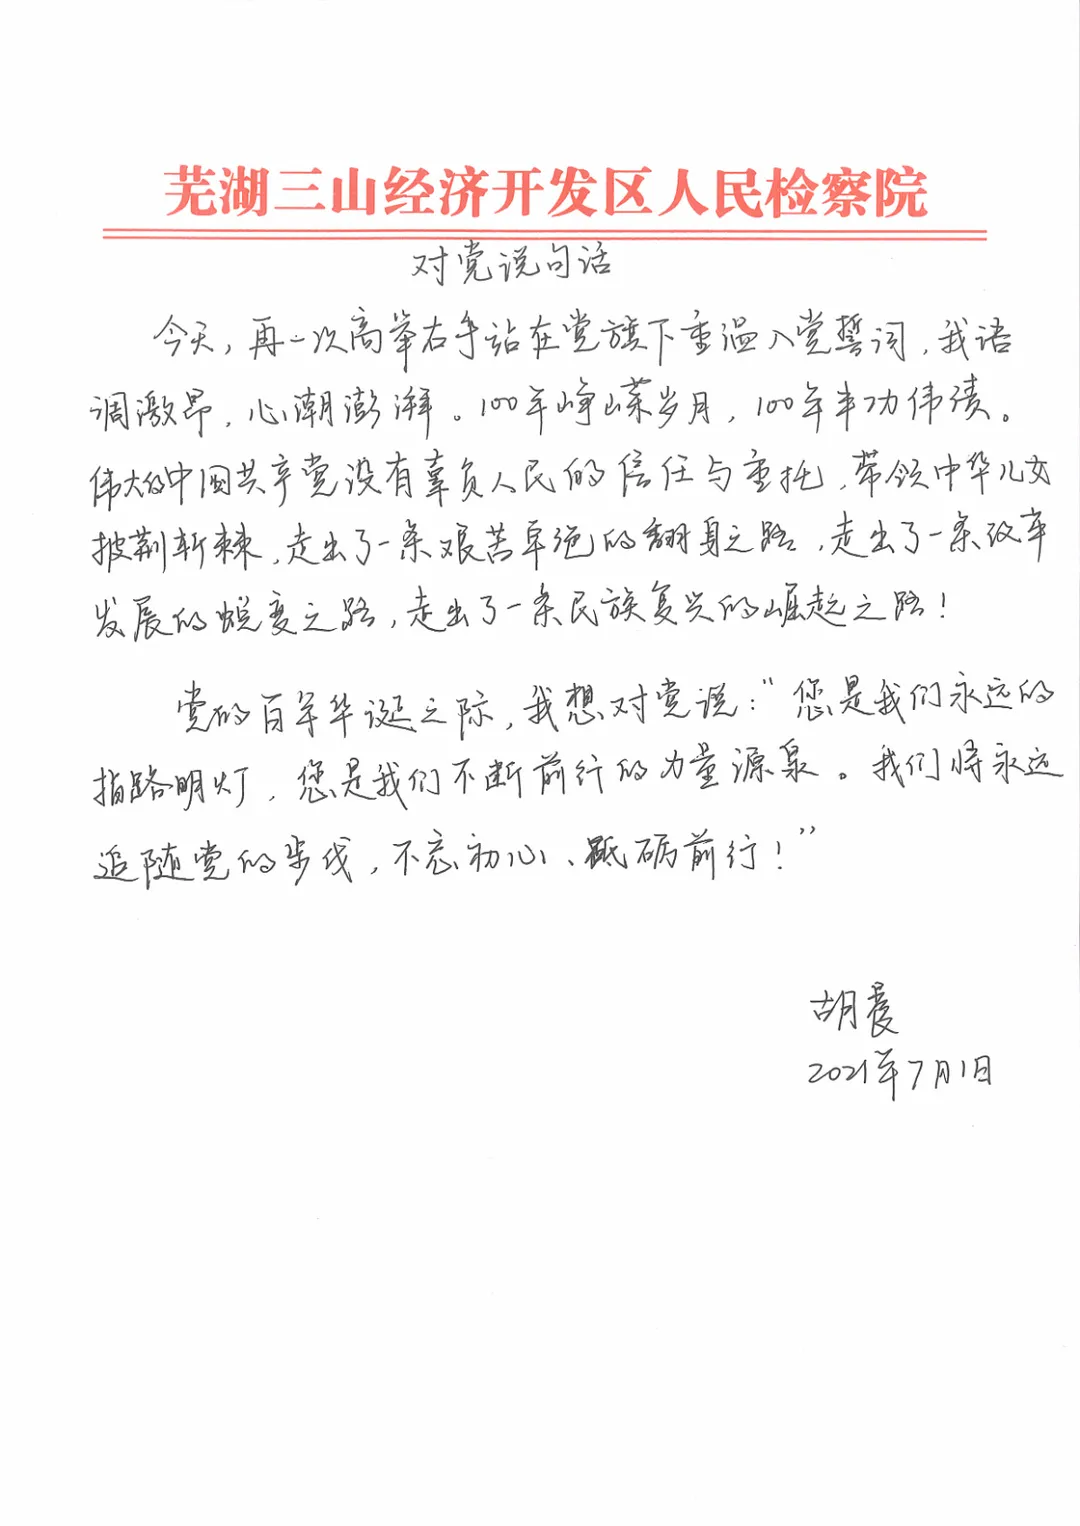 芜湖三山经济开发区人民检察院
对党说句话
今天，再一次高举右手站在党旗下重温入党誓词，我语
调激昂，心潮澎湃。100年峥嵘岁月，100年丰功伟绩。
伟大的中国共产党没有辜负人民的信任与重托，带领中华儿女
披荆斩棘，走出了一条艰苦卓绝的翻身之路，走出了一条改革
发展的蜕变之路，走出了一条民族复兴的崛起之路！
党的百年华诞之际，我想对党说：“您是我们永远的
指路明灯，您是我们不断前行的力量源泉。我们将永远
追随党的步伐，不忘初心、砥砺前行！”
胡晨
2021年7月1日